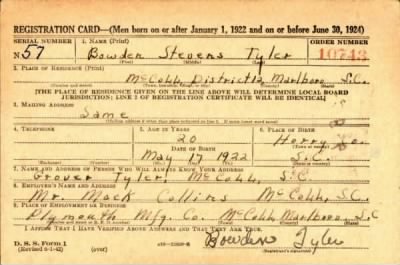 REGISTRATION CARD—(Men born on or after January 1, 1922 and on or before June 30, 1924)
SERIAL NUMBER 1. NAME (Print) ORDER NUMBER
N 57 Bowden Stevens Tyler 10743
(First) (Middle) (Last)
2. PLACE OF RESIDENCE (Print)
McCobb, District 12, Marlboro, S.C.
[THE PLACE OF RESIDENCE GIVEN ON THE LINE ABOVE WILL DETERMINE LOCAL BOARD
JURISDICTION; LINE 2 OF REGISTRATION CERTIFICATE WILL BE IDENTICAL]
3. MAILING ADDRESS
Same
[Mailing address if other than place indicated on line 2. If same insert word same]
4. TELEPHONE 5. AGE IN YEARS 6. PLACE OF BIRTH
20 Horry Co.
DATE OF BIRTH
May 17 1922 S.C.
(Exchange) (Number) (Mo.) (Day) (Yr.) (State or country)
7. NAME AND ADDRESS OF PERSON WHO WILL ALWAYS KNOW YOUR ADDRESS
Grover Tyler, McCobb, S.C.
8. EMPLOYER'S NAME AND ADDRESS
Mr. Mack Collins McCobb, S.C.
9. PLACE OF EMPLOYMENT OR BUSINESS
Plymouth Mfg. Co. McCobb, Marlboro, S.C
I AFFIRM THAT I HAVE VERIFIED ABOVE ANSWERS AND THAT THEY ARE TRUE.
D. S. S. Form 1
(Revised 6-1-42) (over) Bowden Tyler
(Registrant's signature)